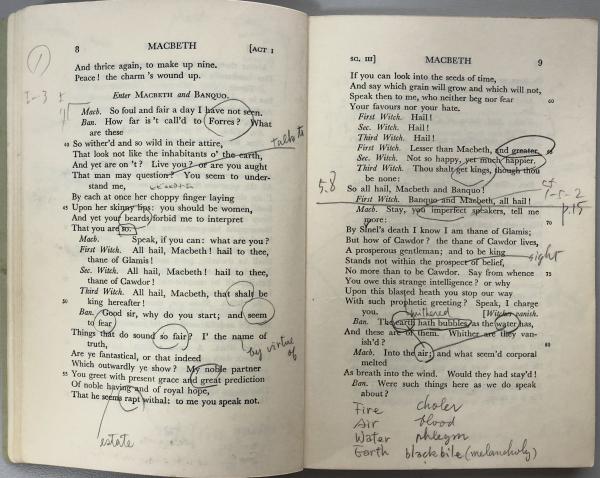 8 MACBETH [ACT I
And thrice again, to make up nine.
Peace! the charm's wound up.
I-3
Enter MACBETH and BANQUO.
Macb. So foul and fair a day I have not seen.
Ban. How far is't call'd to Forres? What
are these
talks to
40 So wither'd and so wild in their attire,
That look not like the inhabitants o' the earth,
And yet are on't? Live you? or are you aught
That man may question? You seem to under-
stand me,
By each at once her choppy finger laying
45 Upon her skinny lips: you should be women,
And yet your beards forbid me to interpret
That you are so.
Macb. Speak, if you can: what are you?
First Witch. All hail, Macbeth! hail to thee,
thane of Glamis!
Sec. Witch. All hail, Macbeth! hail to thee,
thane of Cawdor!
Third Witch. All hail, Macbeth, that shalt be
50 king hereafter!
Ban. Good sir, why do you start; and seem
to fear
Things that do sound so fair? I' the name of
truth,
by virtue of
Are ye fantastical, or that indeed
Which outwardly ye show? My noble partner
55 You greet with present grace and great prediction
Of noble having and of royal hope,
That he seems rapt withal: to me you speak not.
estate
SC. III] MACBETH 9
If you can look into the seeds of time,
And say which grain will grow and which will not,
Speak then to me, who neither beg nor fear 60
Your favours nor your hate.
First Witch. Hail!
Sec. Witch. Hail!
Third Witch. Hail!
First Witch. Lesser than Macbeth, and greater. 65
Sec. Witch. Not so happy, yet much happier.
Third Witch. Thou shalt get kings, though thou
be none:
So all hail, Macbeth and Banquo!
First Witch. Banquo and Macbeth, all hail!
5.8
cf
1-5-2
p.15
Macb. Stay, you imperfect speakers, tell me
more: 70
By Sinel's death I know I am thane of Glamis;
But how of Cawdor? the thane of Cawdor lives,
A prosperous gentleman; and to be king
sight
Stands not within the prospect of belief,
No more than to be Cawdor. Say from whence 75
You owe this strange intelligence? or why
Upon this blasted heath you stop our way
With such prophetic greeting? Speak, I charge
you. [Witches vanish.
withered
Ban. The earth hath bubbles, as the water has,
And these are of them. Whither are they van-
ish'd? 80
Macb. Into the air; and what seem'd corporal
melted
As breath into the wind. Would they had stay'd!
Ban. Were such things here as we do speak
about?
Fire choler
Air blood
Water phlegm
Earth black bile (melancholy)